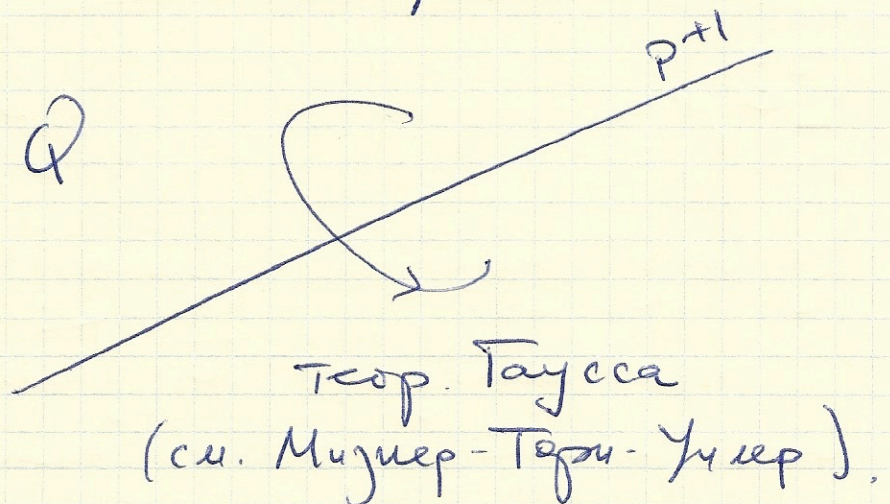 p+1
Q
теор. Гаусса
(см. Мизнер-Торн-Уилер).